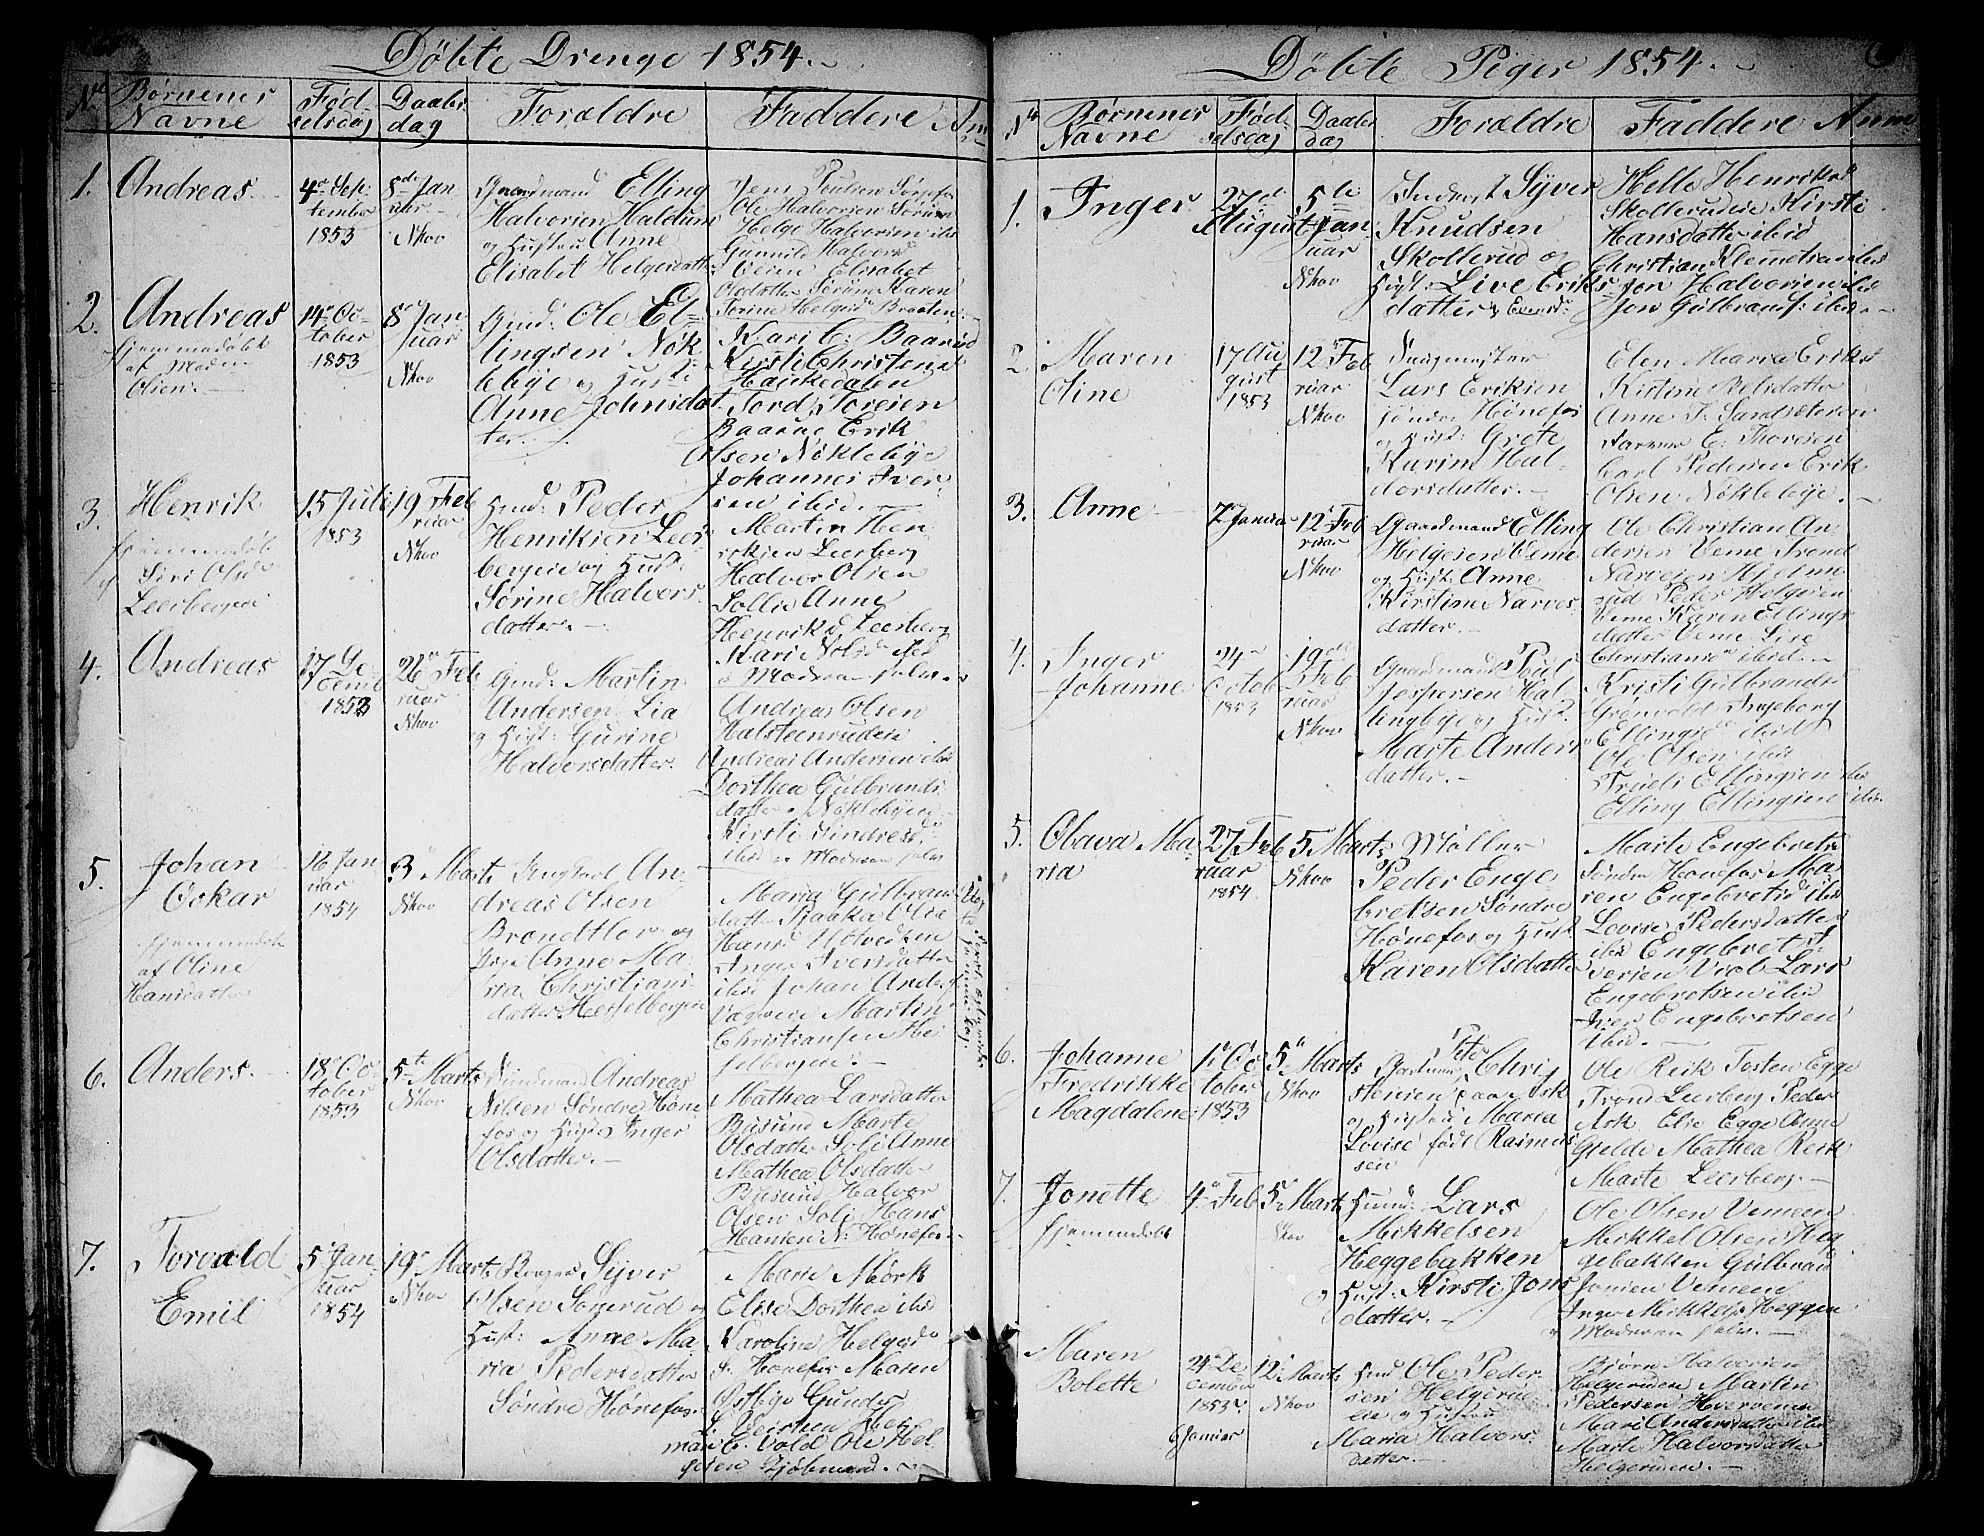 Döbte Drenge 1854.
No
Børnenes
Navne
Föd-
selsdag
Daabs
dag
Forældre
Faddere
Anm
1.
Andreas
4de Sep-
tember
1853
8de Jan
uar
Nkov
Gaardmand Elling
Halvorsen Haldum
og Hustru Anne
Elisabet Helgesdatter
Ole Halvorsen Sörum
Helge Halvorsen ibid
Gunnild Halvorsd
Veien Elisabet
Olsdatter Sörum Karen
Torine Helgesd Braaten.
2.
Andreas
hjemmedöbt
af Moden
Olsen.
14 Oc-
tober
1853
8 Jan
uar
Nkov
Gmd: Ole El-
lingsen Nök
lebye og Hust:
Anne Johnsdat
ter.
Kari C. Baarud
Kirsti Christensd
Haukedalen
Tord Toresen
Baarud Erik
Olsen Nöklebye
Johannes Iver
sen ibid.
3.
Henrik
hjemmedöbt
af
Siri Olsd
Leerbergeie
15 Juli
1853
19 Feb
ruar
Nkov
Hmd: Peder
Henriksen Leer
bergeie og Hust:
Sörine Halvors
datter.
Martin Hen
riksen Leerberg
Halvor Olsen
Sollie Anne
Henriksd. Leerberg
Kari Nilsd ibid
o Moderen selv.
4.
Andreas
17 De
cemb
1853
26 Feb
ruar
Nkov
Gmd: Martin
Andersen Lia
og Hust: Gurine
Halvorsdatter.
Andreas Olsen
Halsteenrudeie
Andreas Andersen ibid
Dorthea Gulbrands
datter Nöklebyeie
Kirsti Sindresd
ibid og Moderen selv
5.
Johan
Oskar
hjemmedöbt
af Oline
Hansdatter
16 Jan
uar
1854
3 Marts
Nkov
Ungkarl An-
dreas Olsen
Brændtlor og
Pige Anne Ma-
ria Christians-
datter Hesselbergeie
Maria Gulbrans
datter Sjaaka Olia
Hansd Hotvedtin
Inger Iversdatter
ibid Johan Anders
Vagveie Martin
Christiansen Hes
selbergeie.
6.
Anders.
18 Oc
tober
1853
5te Marts
Nkov
Huusmand Andreas
Nilsen Söndre Höne
fos og Hust Inger
Olsdatter.
Mathea Larsdatter
Busund Marte
Olsdatter Soli Anne
Mathea Olsdatter
Busund Halvor
Olsen Soli Hans
Hansen N. Hönefos.
7.
Torvald
Emil
5 Jan-
uar
1854
19 Marts
Nkov
Borger Syver
Olsen Sonerud og
Hust: Anne Ma
ria Pedersdatter
Söndre Hönefos.
Marie Mörk
Elise Dorthea ibid
Karoline Helgesd
S. Hönefos Maren
Östbye Gunder
Hei
man C. Vold Ole Hel
gesen Kjöbmand.
Döbte Piger 1854.
No
Børnenes
Navne
Föd
selsdag
Daabs
dag
Forældre
Faddere
Anm
1.
Inger
27de
August
5te
Jan
uar
Nkov
Inderst Syver
Knudsen
Skollerud og
Hust: Live Eriks
datter
Helle Henriksd
Skollerudeie Kirsti
Hansdatter ibid
Christian Klemetsen ibid
Jon Halvorsen ibid
Jon Gulbrands: ibid.
2.
Maren
Oline
17 Au
gust
1853
12 Feb
ruar
Nkov
Saugmester
Lars Eriksen
söndre Hönefos
og Hust: Grete
Karine Hal-
vorsdatter.
Elen Maria Eriksd
Kistine Nelsdatter
Anne J. Sandsetersen
Rasmus E. Thoresen
Carl Pedersen Erik
Olsen Nöklebye.
3.
Anne
7 Januar
12 Feb
ruar
Nkov
Gaardmand Elling
Helgesen Veme
og Hust: Anne
Kirstine Narves
datter.
Ole Christian An
dersen Veme Trond
Narvesen Hjelme
rud Peder Helgesen
Veme Karen Ellings
datter Veme Live
Christiansd ibid.
4.
Inger
Johanne
24
Octob
1853
19de
Feb
ruar
Nkov
Gaardmand Poul
Jespersen Hal
lingbye og Hust.
Marte Anders
datter.
Kristi Gulbrandsd
Grönvold Ingeborg
Ellingsd ibid
Ole Olsen ibid
Truels Ellingsen ibid
Elling Ellingsen ibid.
5.
Olava Ma-
ria
27 Feb
ruar
1854
5 Marts
Nkov
Möller
Peder Enge
bretsen Söndre
Hönefos og Hust
Karen Olsdatter
Marte Engebretsd
Söndre Hönefos Ma
ren Engebretsd ibid
Lovise Pedersdatter
ibid Engebret I-
versen Lars
Engebretsen ibid
Iver Engebretsen
ibid.
6.
Johanne
Fredrikke
Magdalene
1 Oc
tober
1853
5 Marts
Nkov
Gartner Peter Chris
stensen paa Ask
og Hustru Maria
Lovise födt Rasmus
sen
Ole Reik Tosten Egge
Trond Leerberg Peder
Ask Elie Egge Anne
Gjelde Mathea Reik
Marte Leerberg.
7.
Jonette
hjemmedöbt
4 Feb
5 Marts
Nkov
Huusmd: Lars
Mikkelsen
Heggebakken
og Hust: Kirsti Jons
datter.
Ole Olsen Vemeeie
Mikkel Olsen Heg
gebakken Gulbran
Jonsen Vemeeie
Inger Mikkelsd Heggen
o Moderen selv.
Maren
Bolette
24 De
cember
1853
6 Januar
12 Marts
Nkov
Hmd Ole Peder
sen Helgerud
eie og Hustru
Maria Halvors
datter.
Björn Halvorsen
Helgerudeie Martin
Pedersen Hverven
Mari Andersdatter ibid
Marte Halvorsdatter
Helgerudeie.